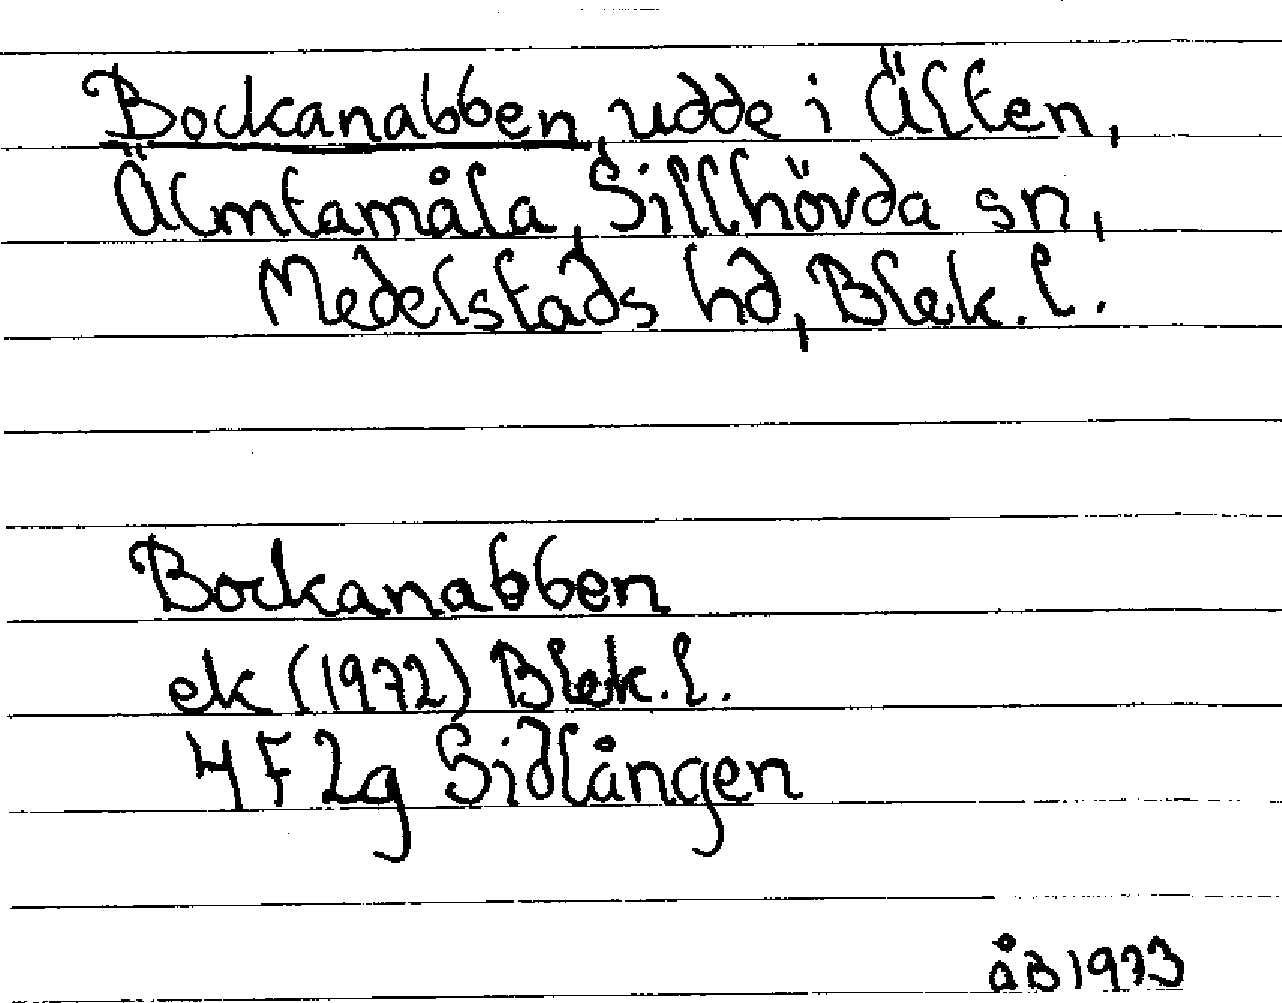 Bockanabben, udde i Älten,
Älmtamåla, Sillhövda sn,
Medelstads hd, Blek. l.
Bockanabben
ek (1972) Blek. l.
4F 2g Sidlången
åB 1973